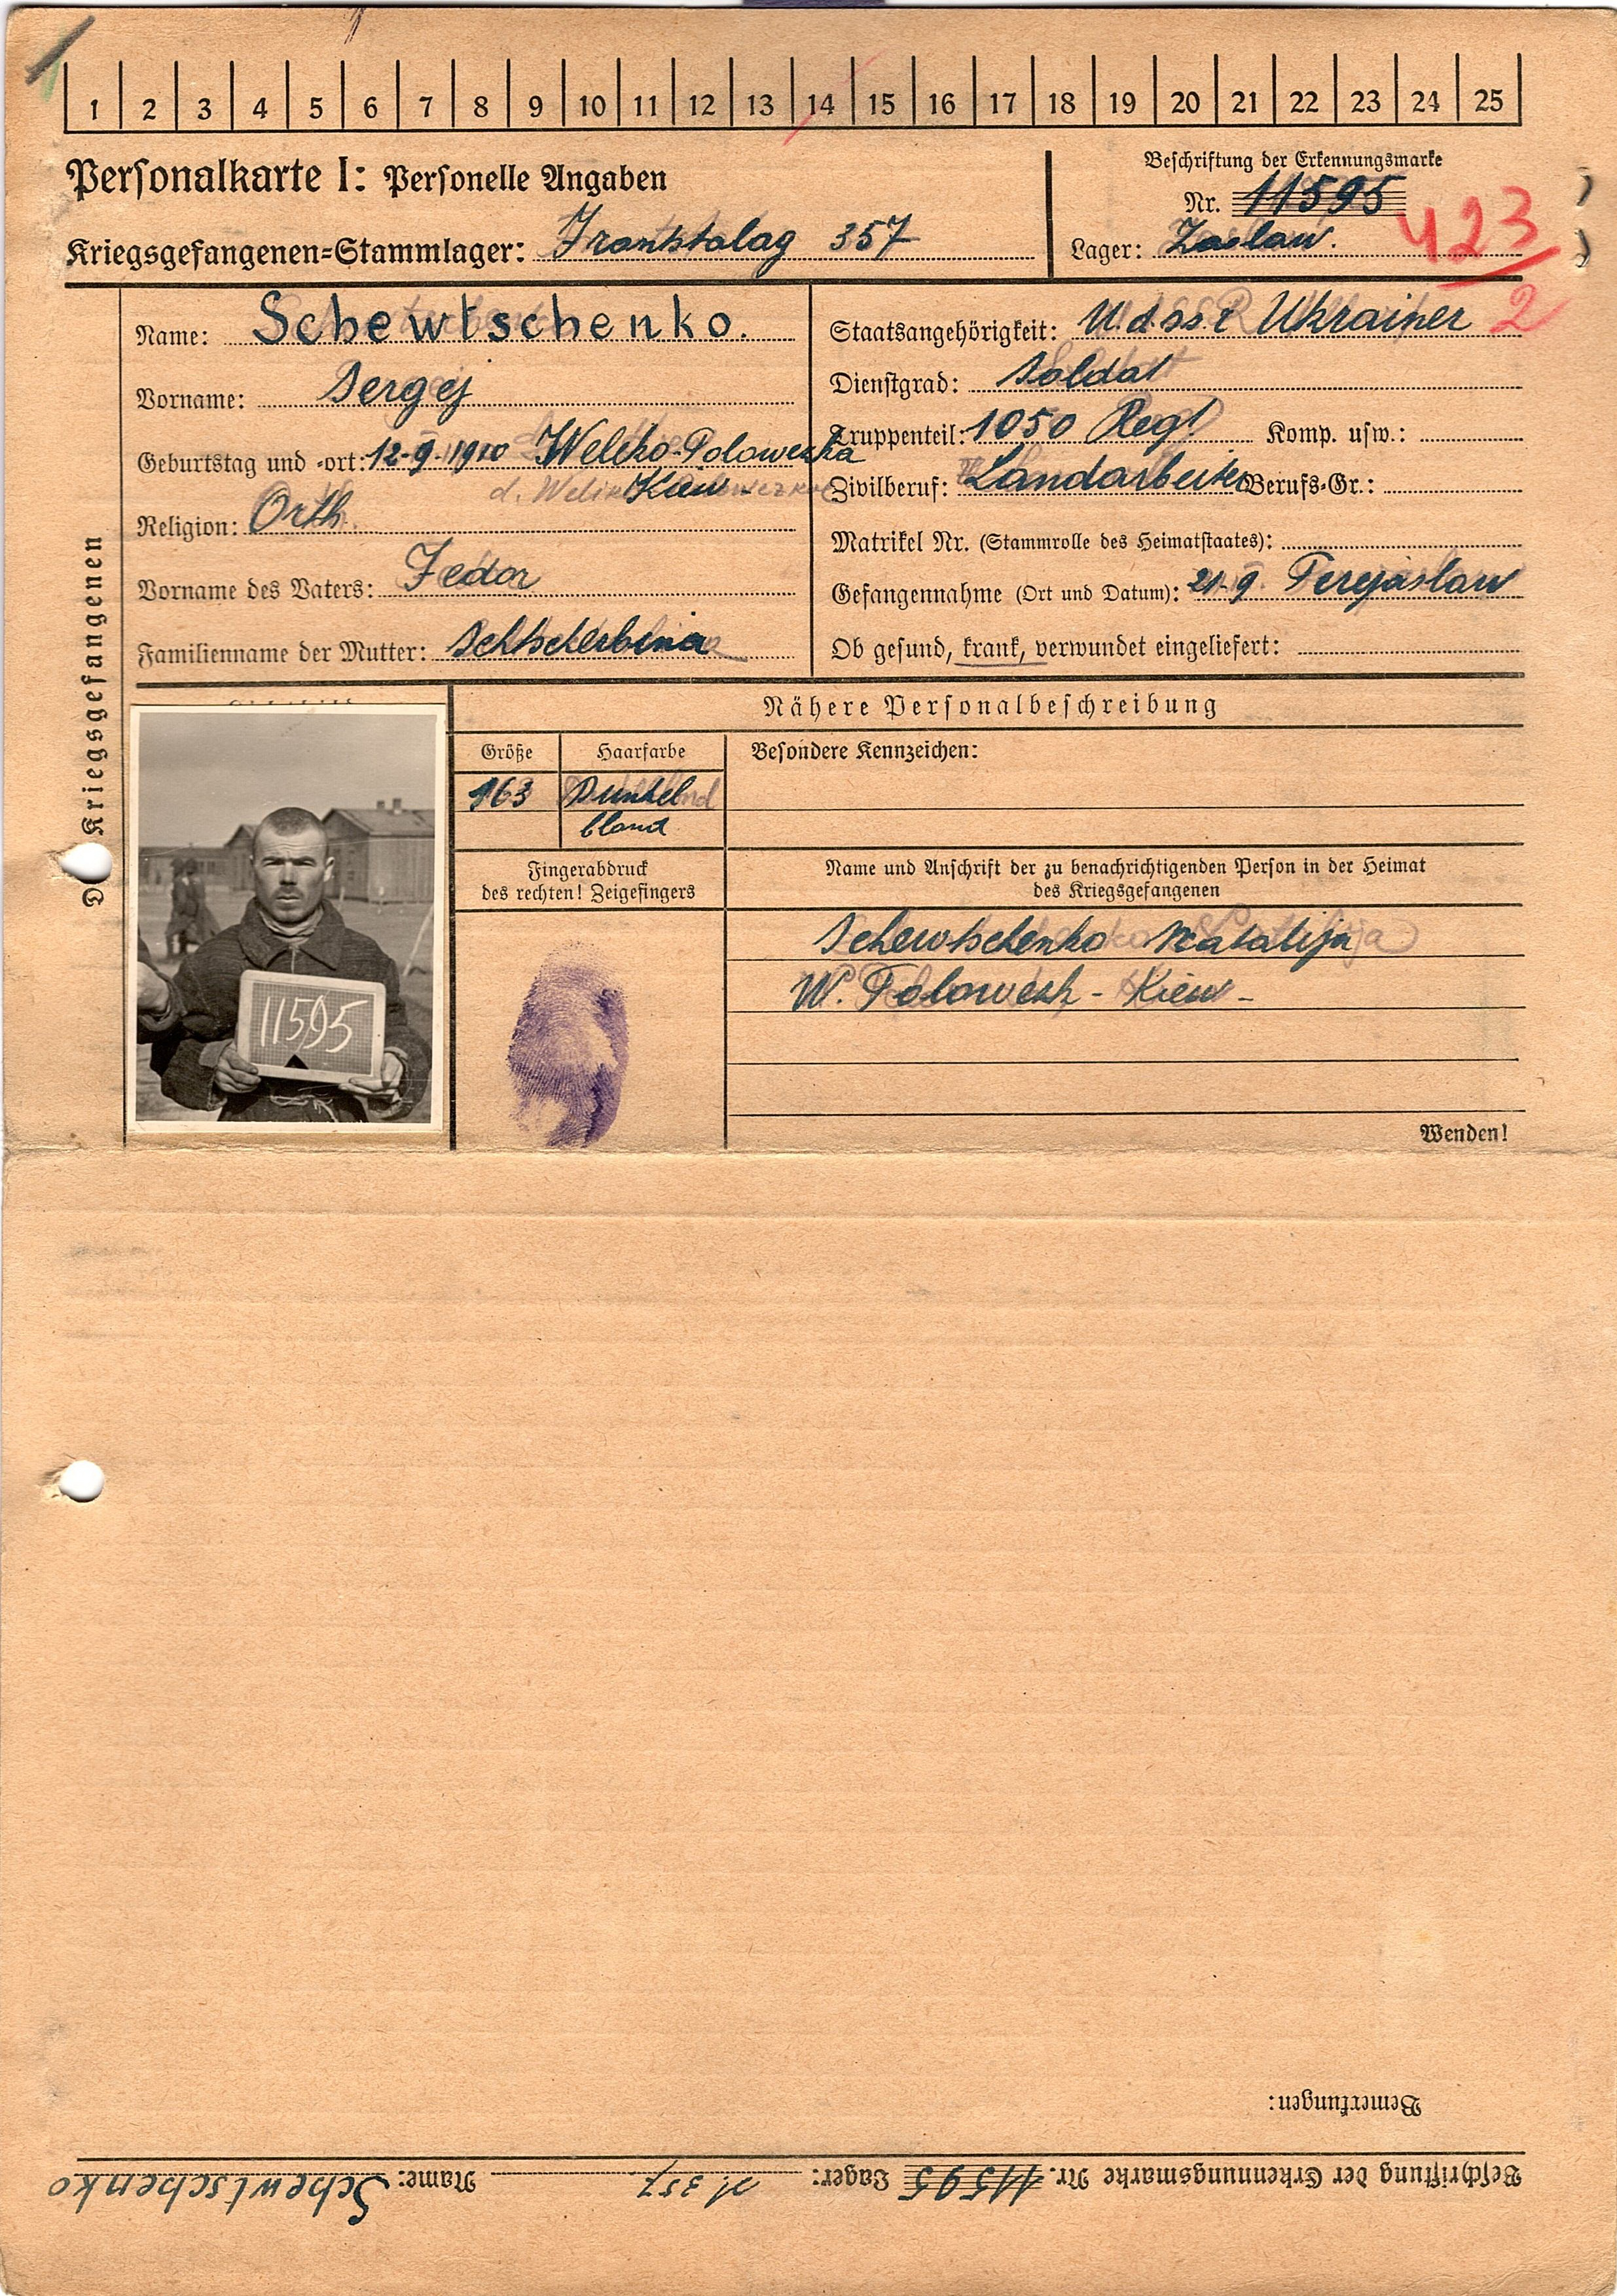 1 2 3 4 5 6 7 8 9 10 11 12 13 14 15 16 17 18 19 20 21 22 23 24 25
Personalkarte I: Personelle Angaben
Kriegsgefangenen=Stammlager: Frontstalag 357
Beschriftung der Erkennungsmarke
Nr. 11595
Lager: Zaslaw.
423
2
Des Kriegsgefangenen
Name: Schewtschenko.
Vorname: Sergej
Geburtstag und =ort: 12-9-1910 Weliko-Polowezka
Kiew-
Religion: Orth.
Vorname des Vaters: Fedor
Familienname der Mutter: Schtscherbina
Staatsangehörigkeit: U.d.ss.r Ukrainer
Dienstgrad: Soldat
Truppenteil: 1050 Regt Komp. usw.:
Zivilberuf: Landarbeiter Berufs=Gr.:
Matrikel Nr. (Stammrolle des Heimatstaates):
Gefangennahme (Ort und Datum): 21-9 Perejaslaw
Ob gesund, krank, verwundet eingeliefert:
Nähere Personalbeschreibung
Größe Haarfarbe Besondere Kennzeichen:
163 Dunkel
blond
Fingerabdruck
des rechten! Zeigefingers
Name und Anschrift der zu benachrichtigenden Person in der Heimat
des Kriegsgefangenen
Schewtschenko Natalija
W. Polowezk - Kiew -
11595
Wenden!
Bemerkungen:
Beschriftung der Erkennungsmarke Nr. 11595 Lager: 357 Name: Schewtschenko